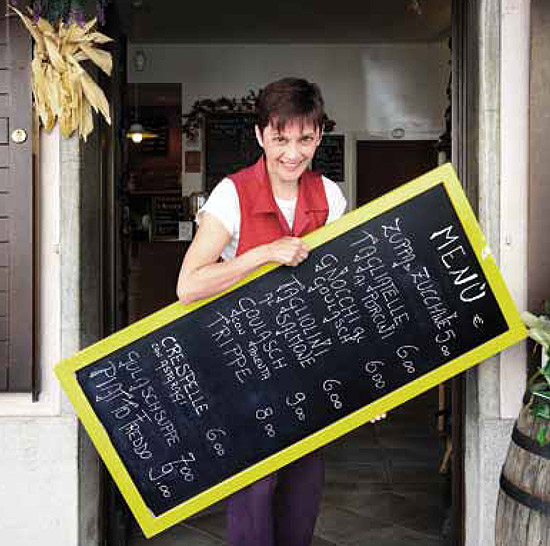 MENÙ €
ZUPPA ZUCCHINE 5.00
TAGLIATELLE
AI PORCINI 6.00
GNOCCHI di
GOULASCH 6.00
TAGLIOLINI
AL SALMONE 6.00
GOULASCH
CON POLENTA 9.00
TRIPPE 8.00
CRESPELLE
CON ASPARAGI 6.00
GULASCHSUPPE 7.00
PIATTO FREDDO 9.00